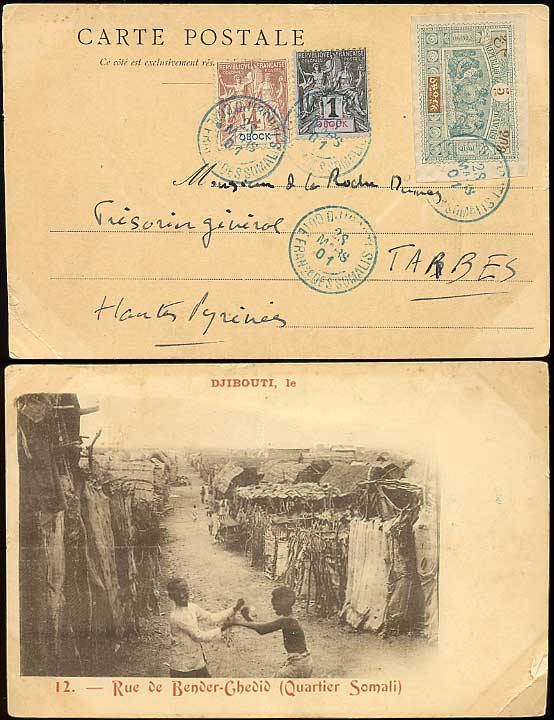 CARTE POSTALE
Ce côté est exclusivement rés
RÉPUBLIQUE FRANÇAISE
COLONIES POSTES
OBOCK
RÉPUBLIQUE FRANÇAISE
COLONIES POSTES
1
OBOCK
5
DJIBOUTI
28
MARS
01
Monsieur de la Roche
Trésorier général
28
MARS
01
TARBES
Hautes Pyrénées
DJIBOUTI, le
12. — Rue de Bender-Ghedid (Quartier Somali)